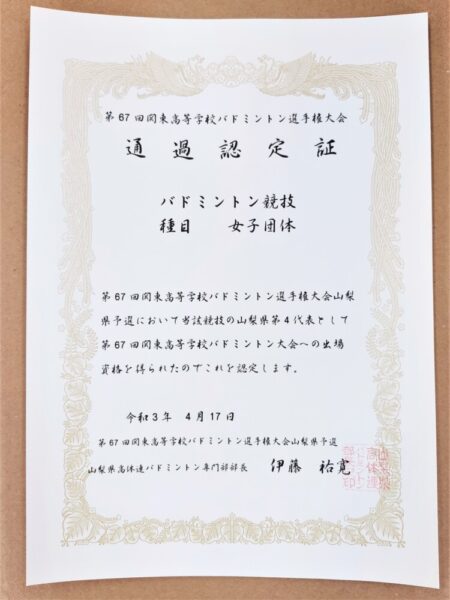 第67回関東高等学校バドミントン選手権大会
通過認定証
バドミントン競技
種目　女子団体
第67回関東高等学校バドミントン選手権大会山梨
県予選において当該競技の山梨県第4代表として
第67回関東高等学校バドミントン大会への出場
資格を得られたのでこれを認定します。
令和3年　4月17日
第67回関東高等学校バドミントン選手権大会山梨県予選
山梨県高体連バドミントン専門部部長　伊藤　祐寛